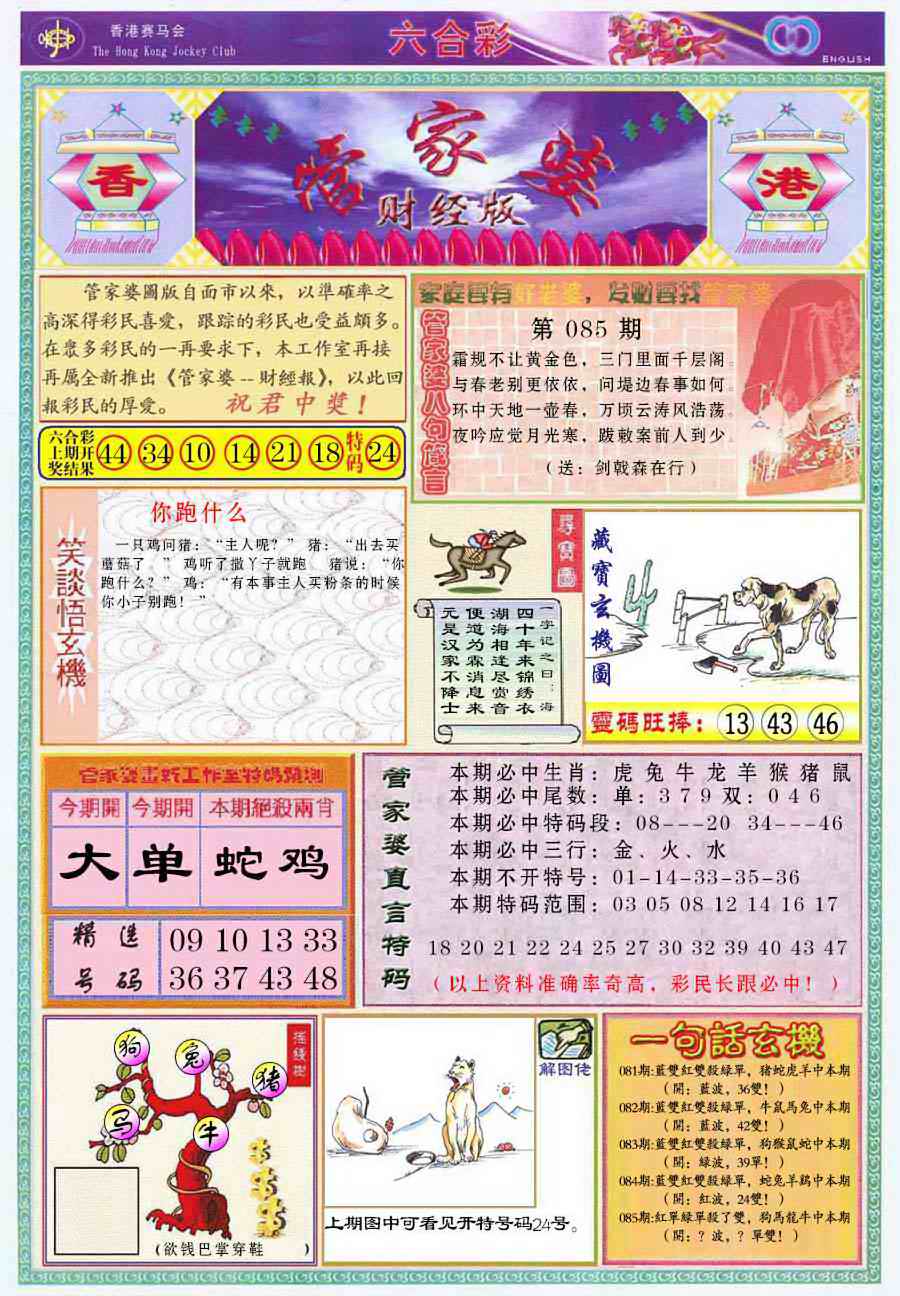 香港赛马会
The Hong Kong Jockey Club
六合彩
ENGLISH
香
管家婆
财经版
港
管家婆圖版自面市以來，以準確率之
高深得彩民喜愛，跟踪的彩民也受益頗多。
在衆多彩民的一再要求下，本工作室再接
再厲全新推出《管家婆--財經報》，以此回
報彩民的厚愛。 祝君中獎！
六合彩
上期开
奖结果
44 34 10 14 21 18 特码 24
家庭要有好老婆，发财要找管家婆
管家婆八句箴言
第 085 期
霜规不让黄金色，三门里面千层阁。
与春老别更依依，问堤边春事如何。
环中天地一壶春，万顷云涛风浩荡。
夜吟应觉月光寒，跋敕案前人到少。
（送：剑戟森在行）
笑談悟玄機
你跑什么
一只鸡问猪：“主人呢？” 猪：“出去买
蘑菇了。” 鸡听了撒丫子就跑。 猪说：“你
跑什么？” 鸡：“有本事主人买粉条的时候
你小子别跑！”
尋寶圖
一字记之曰：海
四十年来锦绣衣
湖海相逢尽赏音
便道为霖消息来
元是汉家不降士
藏寶玄機圖
靈碼旺捧：13 43 46
管家婆畫新工作室特碼預測
今期開 今期開 本期絕殺兩肖
大 单 蛇鸡
精选
号码
09 10 13 33
36 37 43 48
管家婆直言特码
本期必中生肖：虎 兔 牛 龙 羊 猴 猪 鼠
本期必中尾数：单：3 7 9 双：0 4 6
本期必中特码段：08---20 34---46
本期必中三行：金、火、水
本期不开特号：01-14-33-35-36
本期特码范围：03 05 08 12 14 16 17
18 20 21 22 24 25 27 30 32 39 40 43 47
（以上资料准确率奇高，彩民长跟必中！）
摇錢樹
狗
兔
猪
马
牛
（欲钱巴掌穿鞋 ）
解图佬
上期图中可看见开特号码24号。
一句話玄機
081期:藍雙紅雙殺綠單，猪蛇虎羊中本期
（開：藍波，36雙！）
082期:藍雙紅雙殺綠單，牛鼠馬兔中本期
（開：藍波，42雙！）
083期:藍雙紅雙殺綠單，狗猴鼠蛇中本期
（開：綠波，39單！）
084期:藍雙紅雙殺綠單，蛇兔羊鷄中本期
（開：紅波，24雙！）
085期:紅單綠單殺了雙，狗馬龍牛中本期
（開：？波，？單雙！）